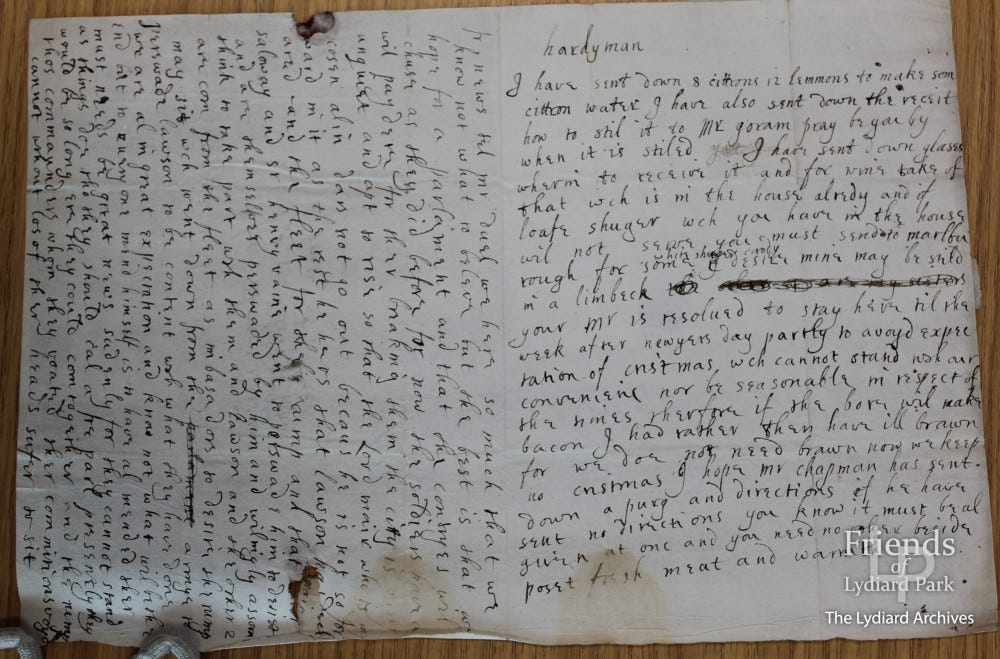 hardyman
I have sent down 8 cittrons 12 lemmons to make som
cittron water I have also sent down the receit
how to stil it to Mr goram pray be you by
when it is stiled I have sent down glases
wherin to receive it and for wine take of
that wch is in the house alredy and if
loafe shuger wch you have in the house
wil not serve you must send to marlbu
rough for som white shuger candy I desire mine may be stild
in a limbeck
your Mr is resolved to stay heve til the
week after newyers day partly to avoyd expec
tation of cristmas wch cannot stand with our
convenienc nor be seasonable in respect of
the times therfore if the bore wil make
bacon I had rather then have ill brawn
for we doe not need brawn now we keep
no cristmas I hope Mr chapman has sent
down a purg and directions if he have
sent no directions you know it must be al
given at one and you need no other beside
poset fresh meat and warm
for news tel mr duel we here so much that we
know not what to beleeve but the best is that we
hope for a parlament and that the
chuse as they did before for now the soldiers
wil pay dere for ther breaking them the citty is
unquiet and apt to rise so that the Lord mair
cosen alin dars not go out becaus he is not so for
ward in it as the rest heve is that lawson has
ared and the fleet for the rump and that
saloway and sr henry vaine went to perswad him to desist
and are themselves perswaded by him and wilingly
think to take part with them and lawson and the other 2
are com from the fleet as imbasadors to desire the rump
may sit wch went down from the armye to
perswade lawson to be content with what they have don
we are al in great expectation and know not what wil be the
end but to turn one mind himself is to have al mended ther
must nedes be great newes sudenly for they cannot stand
as things ar tho they should cal a fre parl presently they
would be so long ere they could com together and the rump
thos commanders whom they voated ther commisions voyd
cannot without los of ther heads sufer to sit
Friends
of
Lydiard Park
The Lydiard Archives